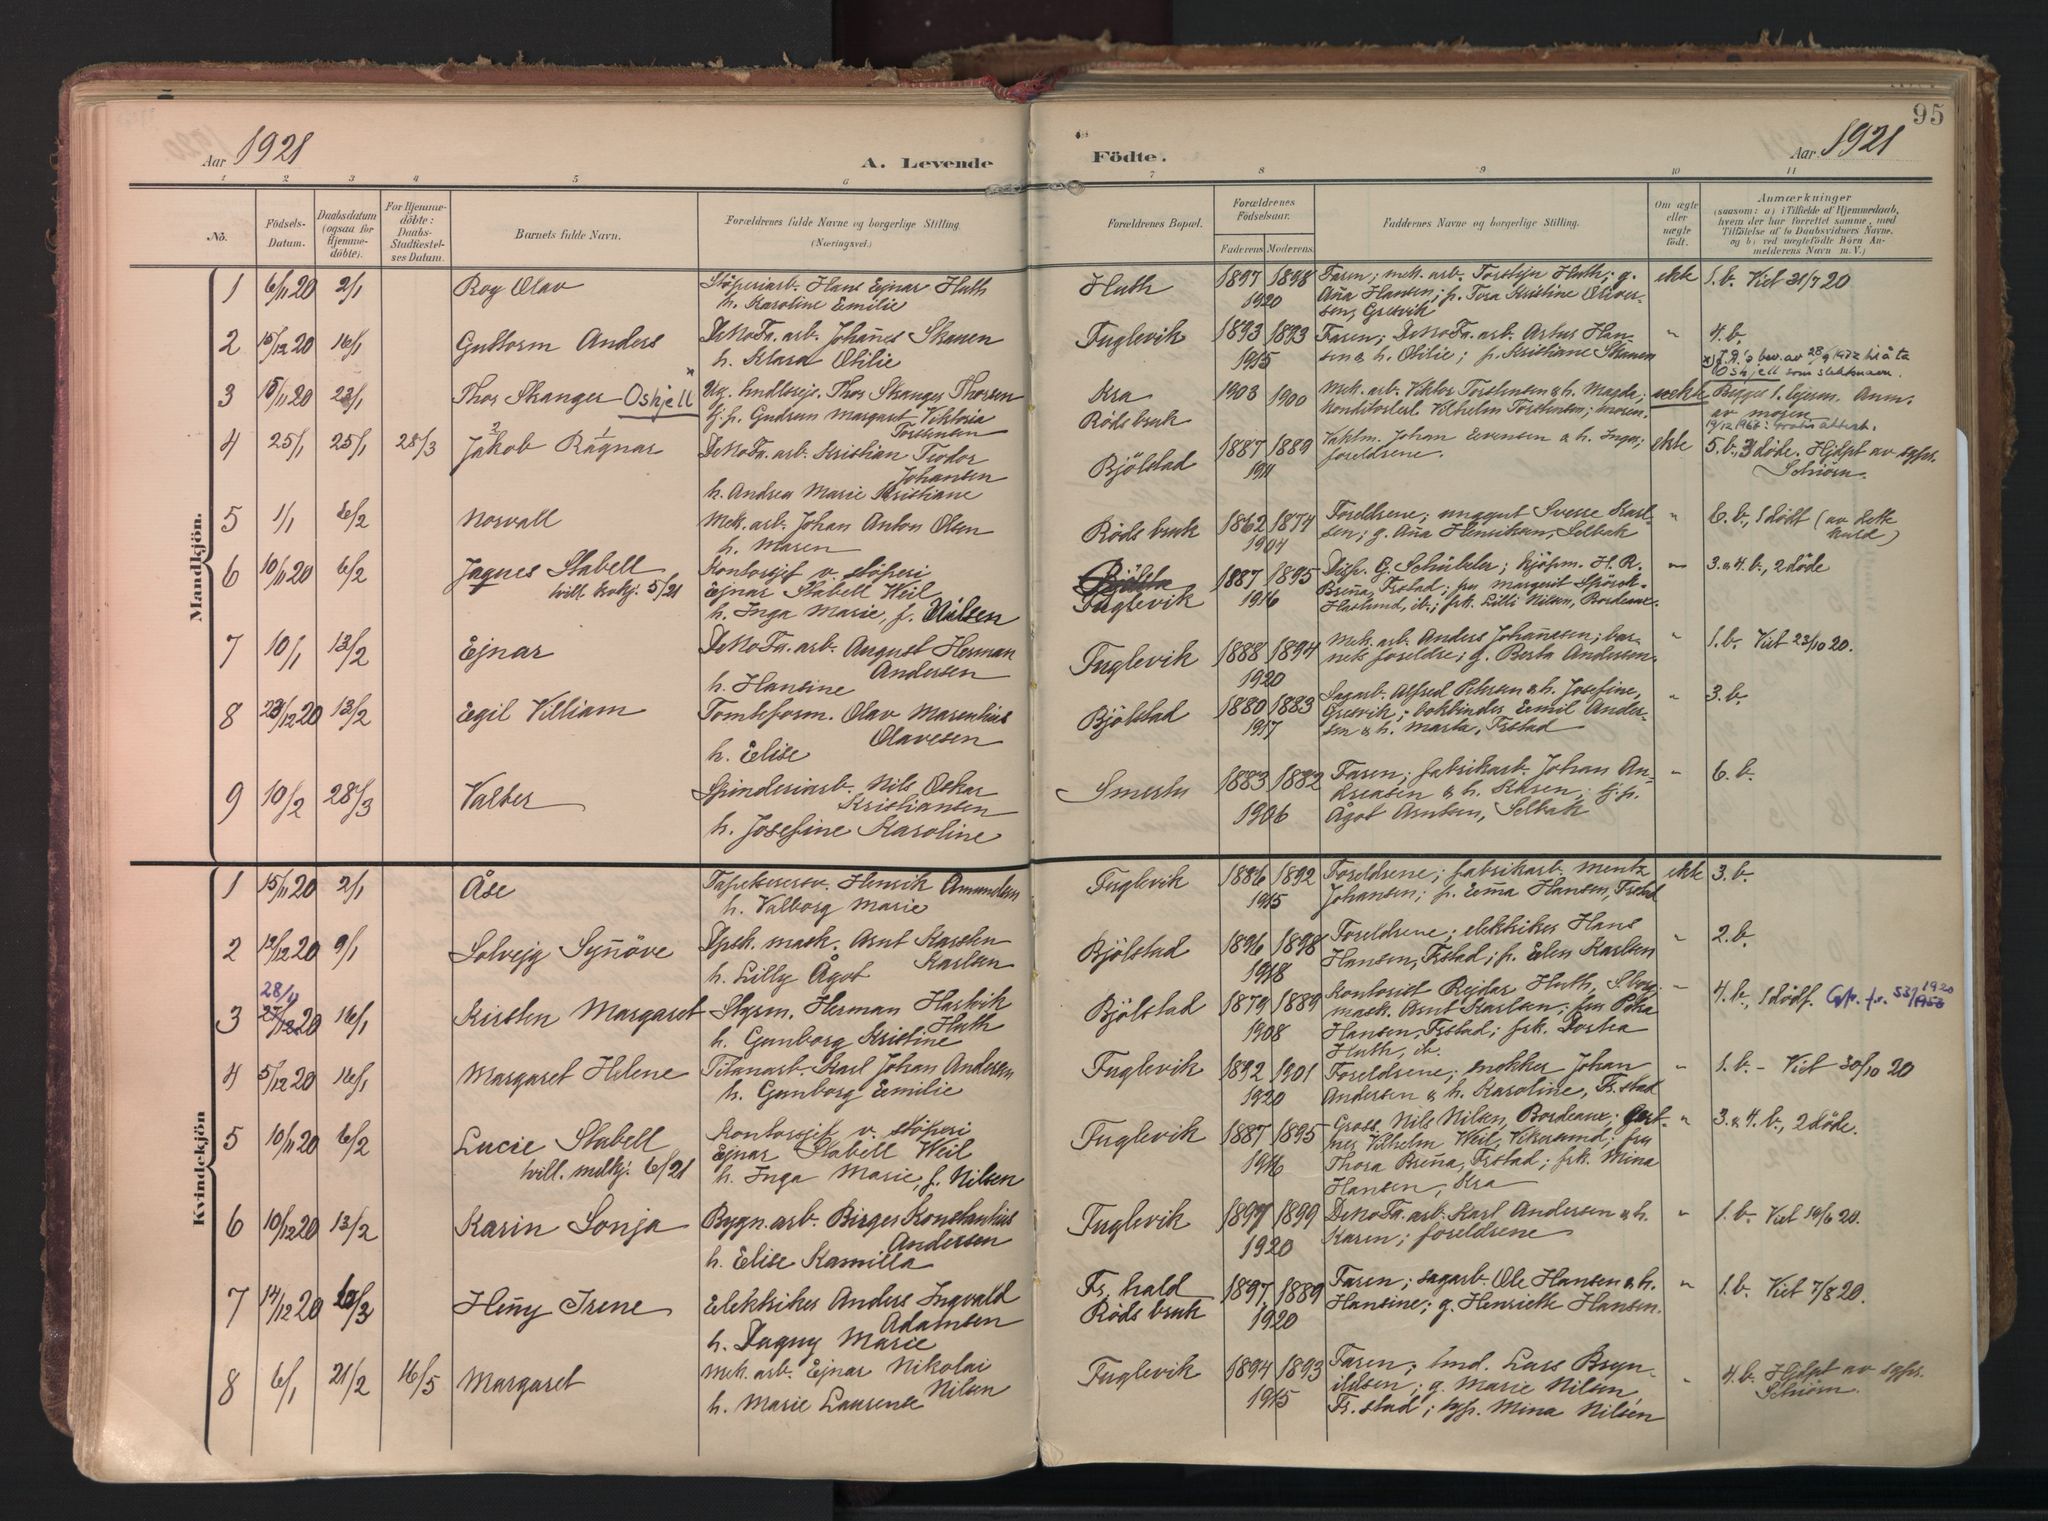 95
Aar 1921
A. Levende
Födte.
Aar 1921
1 2 3 4 5 6 7 8 9 10 11
No.
Födsels-
Datum.
Daabsdatum
(ogsaa for
Hjemme-
döbte).
For Hjemme-
döbte:
Daabs-
Stadfæstel-
ses Datum.
Barnets fulde Navn.
Forældrenes fulde Navne og borgerlige Stilling.
(Næringsvei.)
Forældrenes Bopæl.
Forældrenes
Födselsaar.
Faderens. Moderens.
Faddernes Navne og borgerlige Stilling.
Om ægte
eller
uægte
födt.
Anmærkninger
(saasom: a) i Tilfælde af Hjemmedaab,
hvem der har forrettet samme, med
Tilföielse af to Daabsvidners Navne,
og b) ved uægtefödte Börn An-
melderens Navn m. V.)
Mandkjön.
1 6/11 20 2/1 Roy Olav
Støperiarb. Hans Ejnar Huth
h. Karoline Emilie
Huth
1897 1898
1920
Faren; mek. arb. Torstejn Huth; g.
Aña Hansen; p. Tora Kristine Oliver-
sen, Gresvik
ekte
1. b. Viet 31/7 20
2 15/12 20 16/1 Guttorm Anders
DeNoFa. arb. Johañes Skauen
h. Klara Otilie
Fuglevik
1893 1893
1915
Faren; DeNoFa. arb. Artur Han-
sen & h. Otilie; p. Kristiane Skauen
"
4. b.
Oskjell som slektsnavn.
3 15/11 20 23/1 Thor Skanger Oskjell x
Ug. hndlsrejs. Thor Skanger Thorsen
Gudrun Margaret Viktoria
Torstensen
Kra
Röds bruk
1903 1900
Mek. arb. Viktor Torstensen & h. Magda;
Vilhelm Torstensen; moren.
uekte
av moren
4 25/1 25/1 28/3 Jakob Ragnar
2 1
DeNoFa. arb. Kristian Teodor
Johansen
h. Andrea Marie Kristiane
Bjölstad
1887 1889
1911
Vaktm. Johan Evensen & h. Inga;
foreldrene.
ekte
5. b., 3 døde. Hjdpt av sgpr.
Schiörn.
5 1/1 6/2 Norvall
Mek. arb. Johan Anton Olsen
h. Maren
Röds bruk
1862 1874
1904
Foreldrene; ungegut Sverre Karl-
sen; g. Aña Henriksen, Selbak
"
6. b., 1 dødt (av dette
kuld)
6 10/11 20 6/2 Jaques Stabell
tvill. 5/21
Kontorsjef v. støperi
Ejnar Stabell Weil
h. Inga Marie, f. Nilsen
Fuglevik
1887 1895
1916
Disp. G. Schübeler; kjøpm. H. R.
Breña, Frstad; fru Margerit
Haslund, ib.; frk. Lilli Nilsen, Bordeaux.
"
3. & 4. b., 2 døde
7 10/1 13/2 Ejnar
DeNoFa. arb. August Herman
Andersen
h. Hansine
Fuglevik
1888 1894
1920
Mek. arb. Anders Johañesen; bar-
nets foreldre; g. Berta Andersen.
"
1. b. Viet 23/10 20.
8 23/12 20 13/2 Egil Villiam
Tomteform. Olav Marentius
Olavesen
h. Elise
Bjölstad
1880 1883
1917
Sagarb. Alfred Petersen & h. Josefine,
Gresvik; bokbinder Emil Ander-
sen & h. Marta, Frstad
"
3. b.
9 10/2 28/3 Valter
Spinderiarb. Nils Oskar
Kristiansen
h. Josefine Karoline
Smertu
1883 1882
1906
Faren; fabrikarb. Johan An-
dreasen & h. Karen; tj. p.
Ågot Arntsen, Selbak
"
6. b.
Kvindekjön
1 15/11 20 2/1 Åse
Tapetserersv. Henrik Amundsen
h. Valborg Marie
Fuglevik
1886 1892
1915
Foreldrene; fabrikarb. Mentz
Johansen; p. Eña Hansen, Frstad
ekte
3. b.
2 12/12 20 9/1 Solvejg Syñöve
Dpsk. mask. Arnt Karsten
Karlsen
h. Lilly Ågot
Bjölstad
1896 1898
1918
Foreldrene; elektriker Hans
Hansen, Frstad; p. Elen Karlsen
"
2. b.
28/11
3 27/12 20 16/1 Kirsten Margaret
Styrm. Herman Hasvik
Huth
h. Gunborg Kristine
Bjölstad
1879 1889
1908
Kontorist Rejdar Huth, S.borg;
mask. Arnt Karlsen; fru Petra
Hansen, Frstad; frk. Dortea
Huth, ib.
"
4. b., 1 dødf.
4 5/12 20 16/1 Margaret Helene
Titanarb. Karl Johan Andersen
h. Gunborg Emilie
Fuglevik
1892 1901
1920
Foreldrene; snekker Johan
Andersen & h. Karoline, Fr.stad
"
1. b. - Viet 30/10 20
5 10/11 20 6/2 Lucie Stabell
tvill. 6/21
Kontorsjef v. støperi
Ejnar Stabell Weil
h. Inga Marie, f. Nilsen
Fuglevik
1887 1895
1916
Gross. Nils Nilsen, Bordeaux; gart-
ner Vilhelm Weil, Vikersund; fru
Thora Breña, Frstad; frk. Mina
Hansen, Kra
"
3. & 4. b., 2 døde.
6 10/12 20 13/2 Karin Sonja
Bygn. arb. Birger Konstantius
Andersen
h. Elise Kamilla
Fuglevik
1897 1899
1920
DeNoFa. arb. Karl Andersen & h.
Karen; foreldrene
"
1. b. Viet 19/6 20.
7 14/12 20 Heñy Irene
Elektriker Anders Ingvald
Adamsen
h. Dagny Marie
Fr. hald
Röds bruk
1897 1889
1920
Faren; sagarb. Ole Hansen & h.
Hansine; g. Henriette Hansen.
"
1. b. Viet 7/8 20.
8 6/1 21/2 16/5 Margaret
Mek. arb. Ejnar Nikolai
Nilsen
h. Marie Laurense
Fuglevik
1894 1893
1915
Faren; Lars Bryn-
ildsen; g. Marie Nilsen,
Fr. stad; Mina Nilsen
"
4. b. Hjdpt av sgpr.
Schiörn.